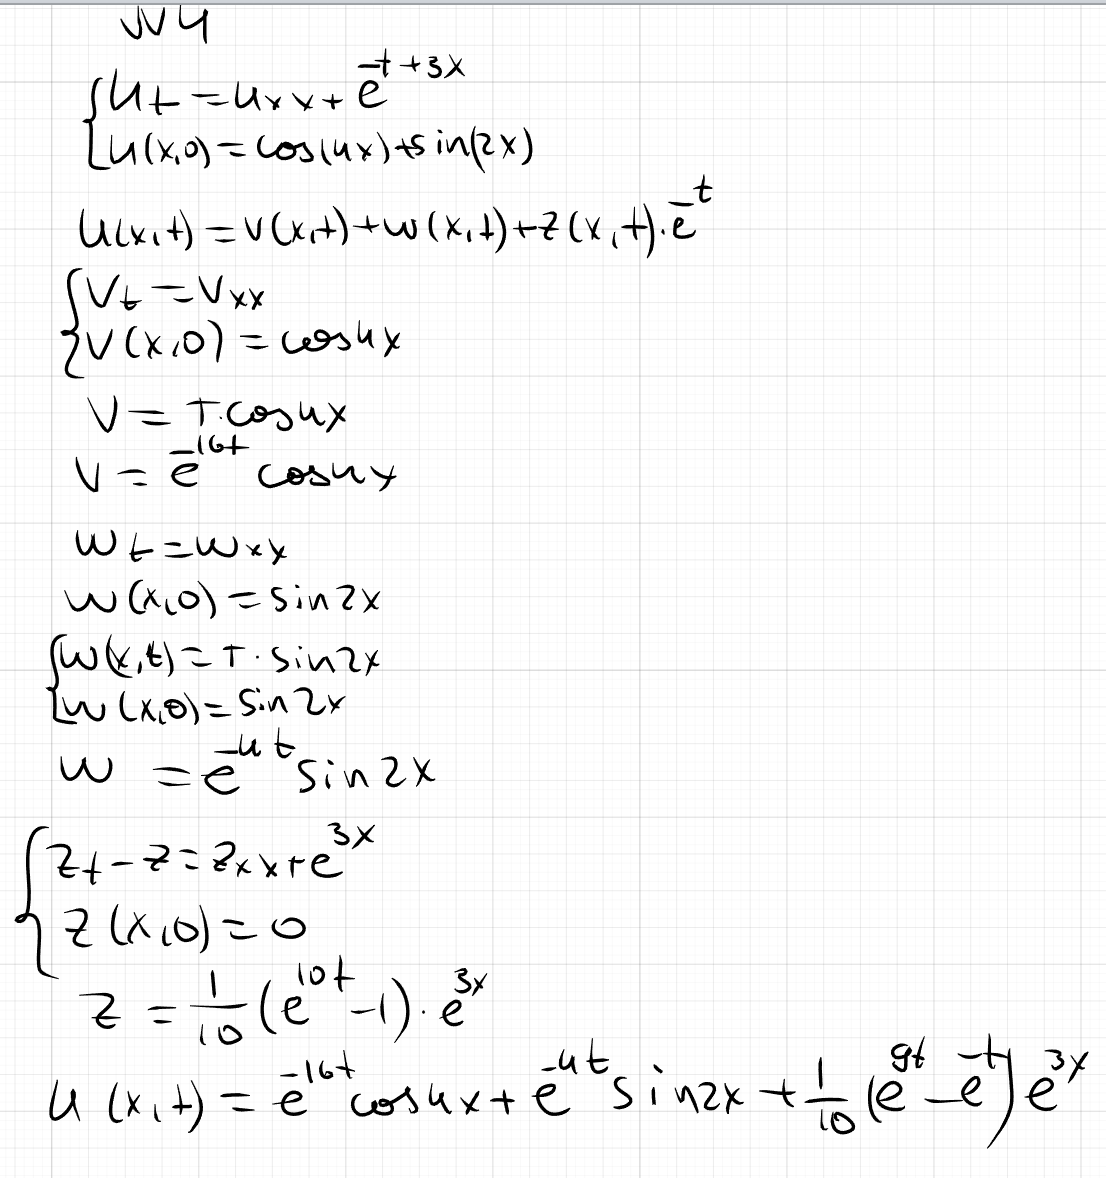 №4
{ u_t = u_xx + e^(-t+3x)
{ u(x,0) = cos(4x) + sin(2x)
u(x,t) = v(x,t) + w(x,t) + z(x,t)·e^(-t)
{ v_t = v_xx
{ v(x,0) = cos4x
v = T·cos4x
v = e^(-16t) cos4x
w_t = w_xx
w(x,0) = sin2x
{ w(x,t) = T·sin2x
{ w(x,0) = sin2x
w = e^(-4t) sin2x
{ z_t - z = z_xx + e^(3x)
{ z(x,0) = 0
z = 1/10 (e^(10t) - 1)·e^(3x)
u(x,t) = e^(-16t) cos4x + e^(-4t) sin2x + 1/10 (e^(9t) - e^(-t)) e^(3x)